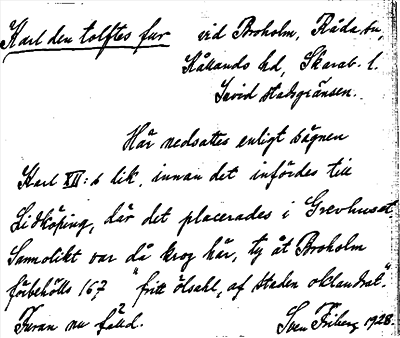 Karl den tolftes fur vid Broholm, Råda sn,
Kållands hd, Skarab. l.
Invid stadsgränsen.
Här nedsattes enligt sägnen
Karl XII:s lik, innan det infördes till
Lidköping, där det placerades i Grevhuset
Sannolikt var då krog här, ty åt Broholm
förbehölls 167 "fritt ölsahl, af staden oklandrat".
Furan nu fälld. Sven Friberg 1928.